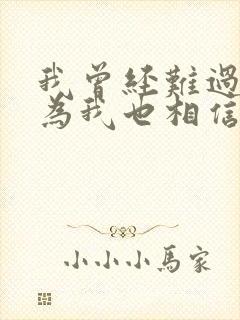 我曾經難過
為我也相信
小小小馬家